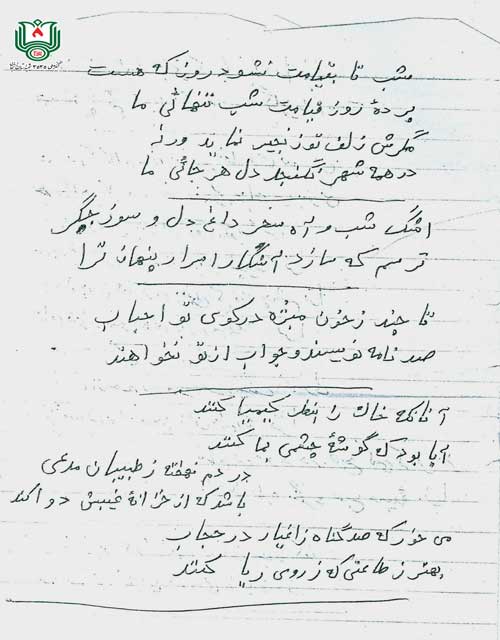 شب تا بقیامت نشود روز که هست
پردهٔ روز قیامت شب تنهائی ما
مگرش زلف تو زنجیر نماید ورنه
در همه شهر نگنجد دل هر جائی ما
اشگ شب و آه سحر داغ دل و سوز جگر
ترسم که سازد آشکارا اسرار پنهان ترا
تا چند ز خون مژه در کوی تو احباب
صد نامه نویسند و جواب از تو نخواهند
آنانکه خاک را بنظر کیمیا کنند
آیا بود که گوشهٔ چشمی بما کنند
دردم نهفته ز طبیبان مدعی
باشد که از خزانهٔ غیبش دوا کند
می خور که صد گناه ز اغیار در حجاب
بهتر ز طاعتی که ز روی ریا کنند